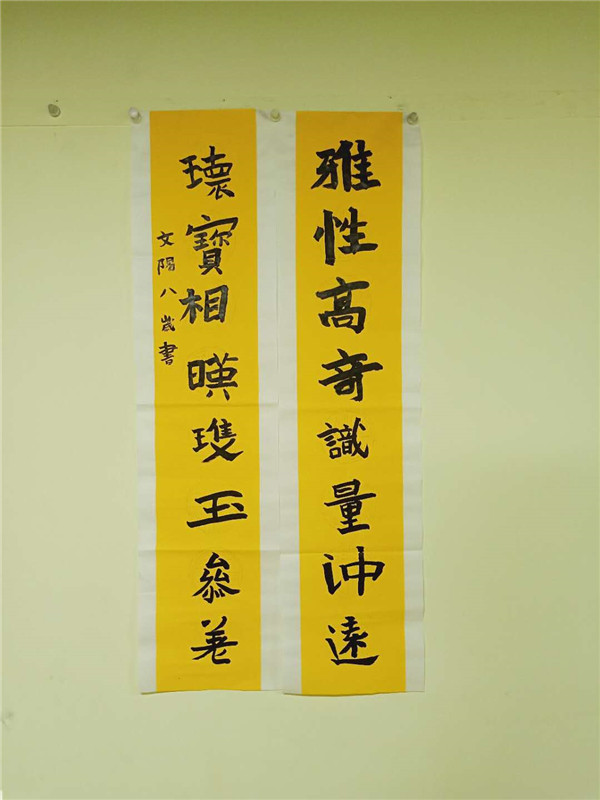 雅性高奇識量冲遠
瓌寶相暎玉參差
文陽八歲書